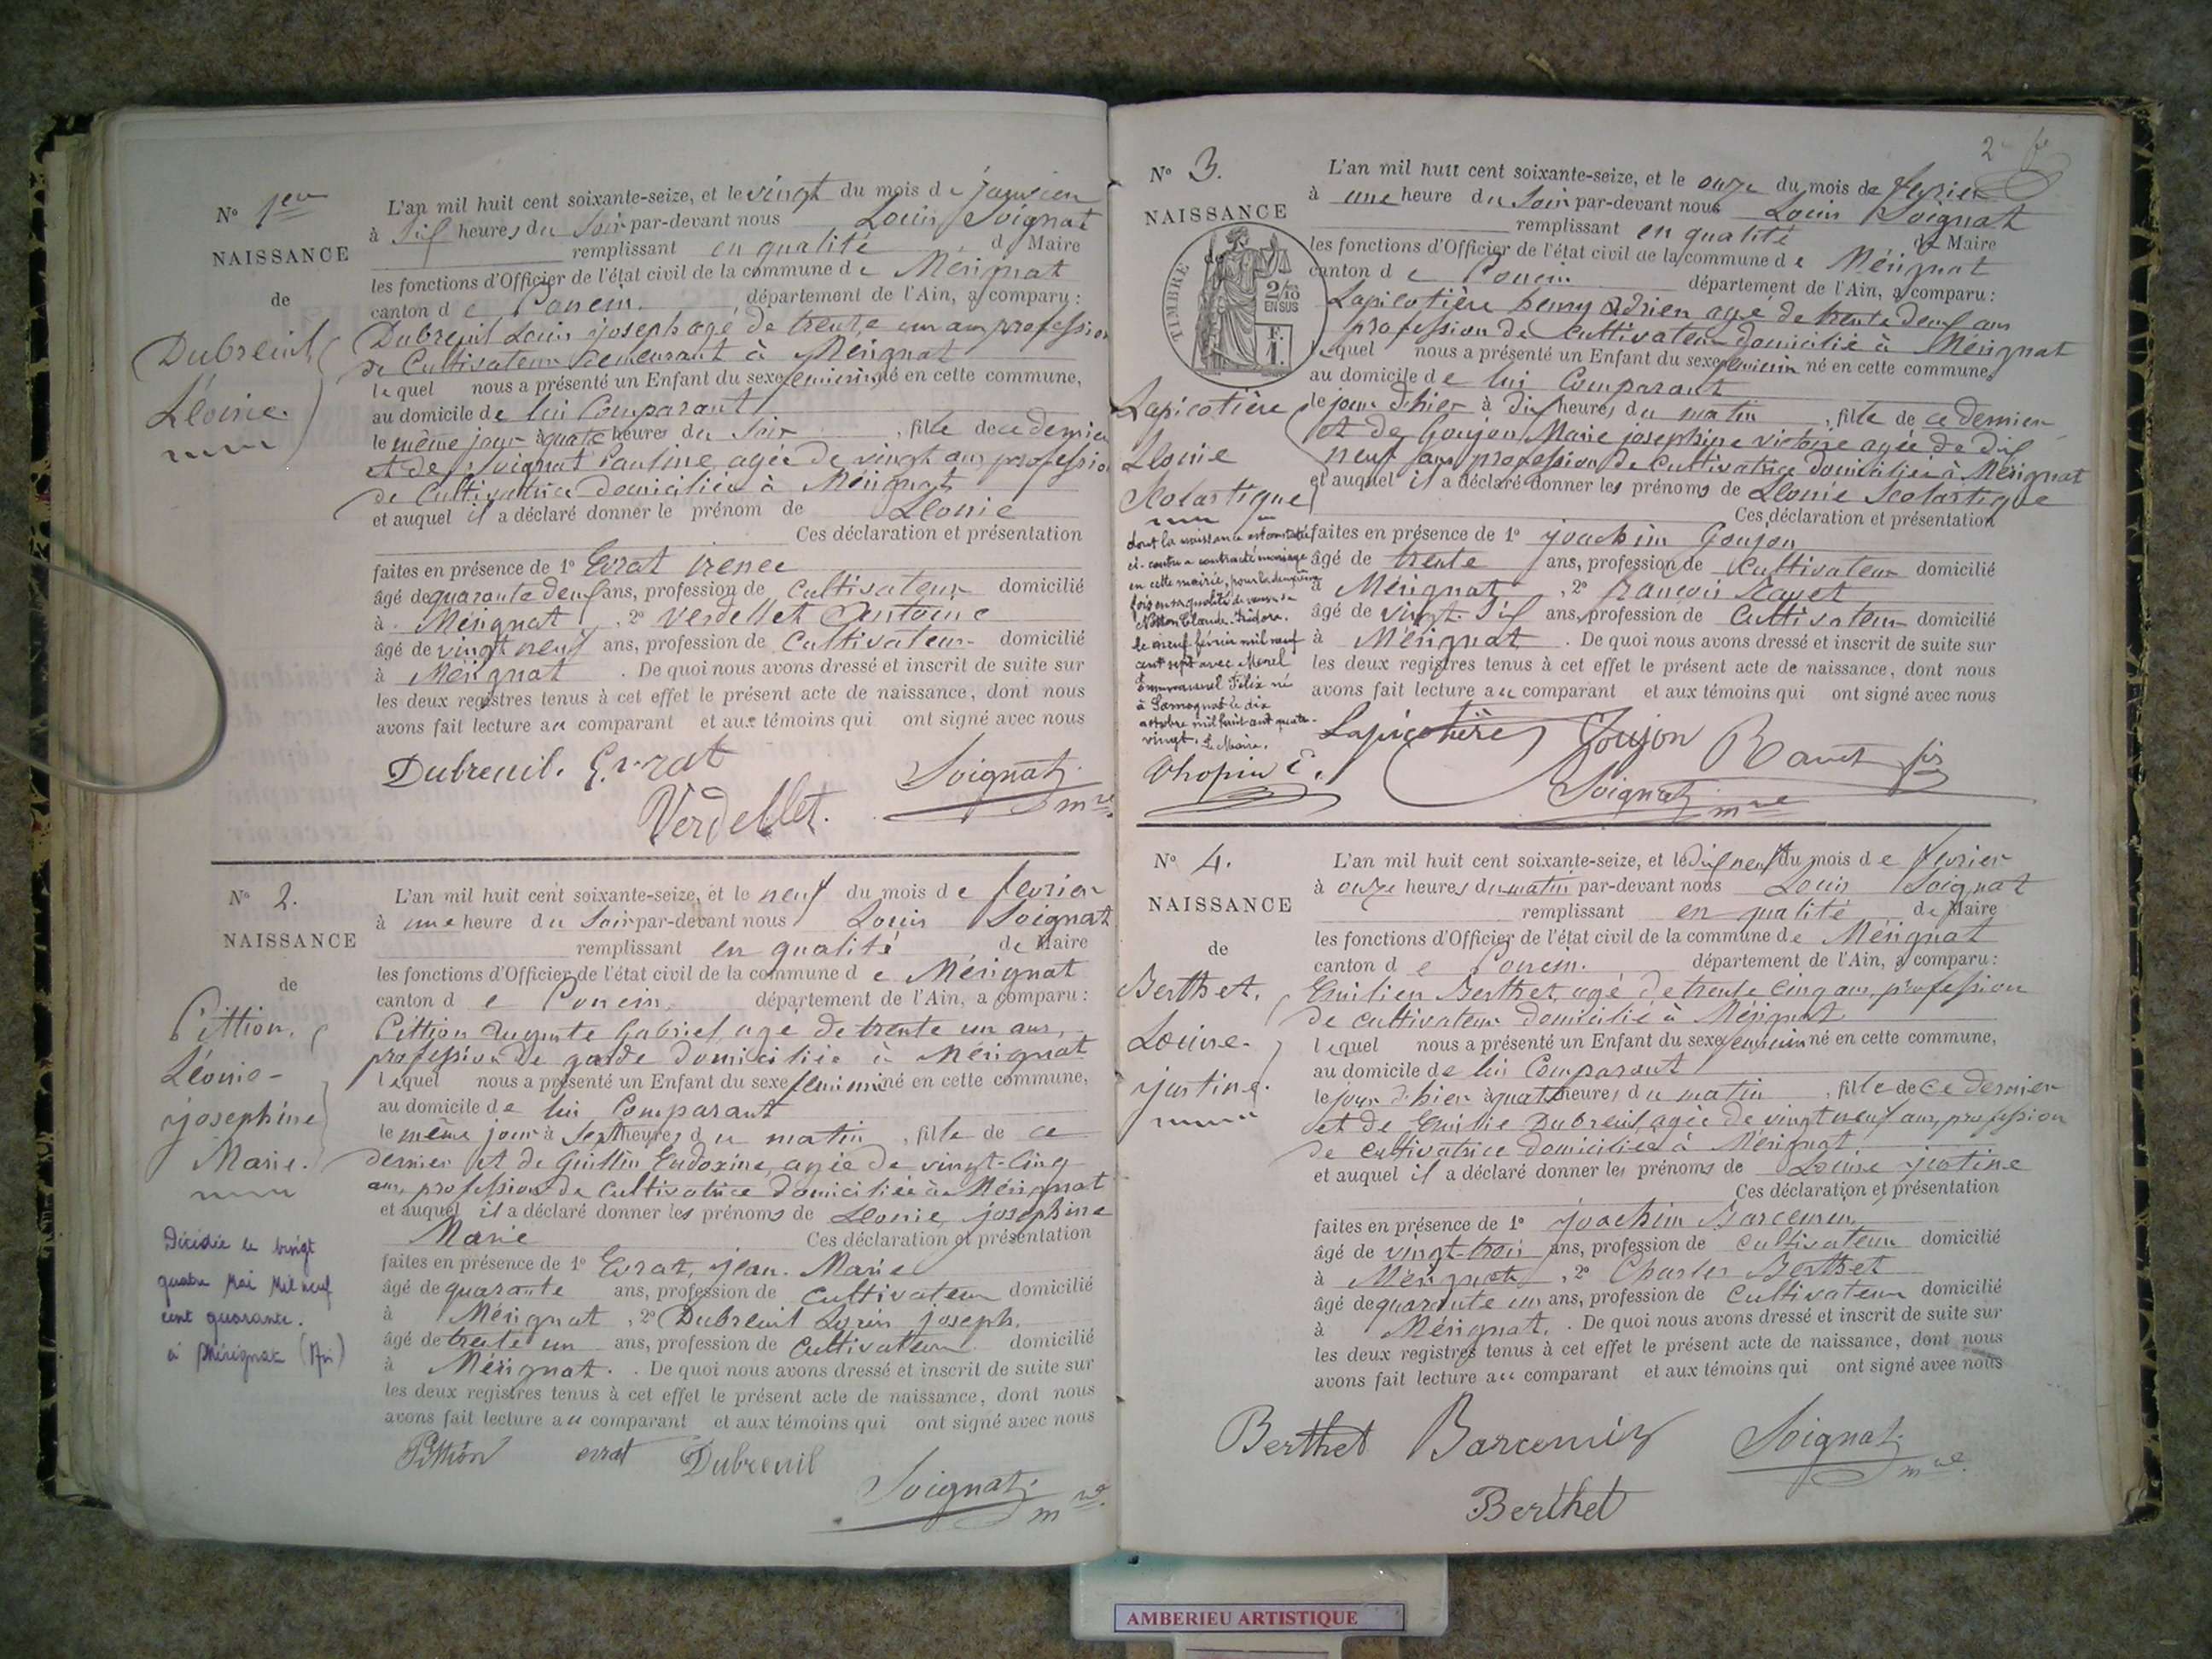 N° 1er
NAISSANCE
de
Dubreuil
Léonie.
L'an mil huit cent soixante-seize, et le vingt du mois de janvier
à six heures du soir par-devant nous Louis Soignat
remplissant en qualité de Maire
les fonctions d'Officier de l'état civil de la commune de Mérignat
canton de Poncin. département de l'Ain, a comparu :
Dubreuil Louis joseph agé de trente un ans profession
de Cultivateur demeurant à Mérignat
lequel nous a présenté un Enfant du sexe féminin né en cette commune,
au domicile de lui Comparant
le même jour à quatre heures du soir, fille de ce dernier
et de Soignat Pauline, agée de vingt ans profession
de Cultivatrice domiciliée à Mérignat
et auquel il a déclaré donner le prénom de Léonie
Ces déclaration et présentation
faites en présence de 1° Evrat irenee
âgé de quarante deux ans, profession de Cultivateur domicilié
à Mérignat, 2° Verdellet Antoine
âgé de vingt neuf ans, profession de Cultivateur domicilié
à Mérignat. De quoi nous avons dressé et inscrit de suite sur
les deux registres tenus à cet effet le présent acte de naissance, dont nous
avons fait lecture au comparant et aux témoins qui ont signé avec nous
Dubreuil. Evrat
Verdellet. Soignat mre
N° 2.
NAISSANCE
de
Pittion.
Léonie
josephine
Marie.
Décédée le vingt
quatre Mai Mil neuf
cent quarante.
à Mérignat (Ain)
L'an mil huit cent soixante-seize, et le neuf du mois de fevrier
à une heure du soir par-devant nous Louis Soignat
remplissant en qualité de Maire
les fonctions d'Officier de l'état civil de la commune de Mérignat
canton de Poncin. département de l'Ain, a comparu :
Pittion Auguste Gabriel agé de trente un ans,
profession de garde domiciliée à Mérignat
lequel nous a présenté un Enfant du sexe feminin né en cette commune,
au domicile de lui Comparant
le même jour à Sept heures du matin, fille de ce
dernier et de Guillin Eudoxine, agée de vingt-cinq
ans, profession de Cultivatrice domiciliée à Mérignat
et auquel il a déclaré donner les prénoms de Léonie, josephine
Marie Ces déclaration et présentation
faites en présence de 1° Evrat, jean. Marie
âgé de quarante ans, profession de cultivateur domicilié
à Mérignat, 2° Dubreuil Louis joseph.
âgé de trente un ans, profession de Cultivateur domicilié
à Mérignat. De quoi nous avons dressé et inscrit de suite sur
les deux registres tenus à cet effet le présent acte de naissance, dont nous
avons fait lecture au comparant et aux témoins qui ont signé avec nous
Pittion evrat Dubreuil
Soignat mre
2
N° 3.
NAISSANCE
de
TIMBRE 2/10 EN SUS F. 1.
Lapicotière
Léonie
Scolastique
dont la naissance est constatée
ci-contre a contracté mariage
en cette mairie, pour la deuxième
fois en sa qualité de veuve de
Claude-Isidore.
le neuf février mil neuf
cent sept avec Morel
Emmanuel Félix né
à Samognat le dix
octobre mil huit cent quatre-
vingt. Le Maire.
Chopin E.
L'an mil huit cent soixante-seize, et le onze du mois de fevrier
à une heure du Soir par-devant nous Louis Soignat
remplissant en qualité de Maire
les fonctions d'Officier de l'état civil de la commune de Mérignat
canton de Poncin département de l'Ain, a comparu :
Lapicotière henry Adrien agé de trente deux ans
profession de Cultivateur domicilié à Mérignat
lequel nous a présenté un Enfant du sexe feminin né en cette commune,
au domicile de lui Comparant
le jour d'hier à dix heures du matin, fille de ce dernier
et de Goujon Marie josephine victoire agée de dix
neuf ans, profession de Cultivatrice domiciliée à Mérignat
et auquel il a déclaré donner les prénoms de Léonie Scolastique
Ces déclaration et présentation
faites en présence de 1° joachim Goujon
âgé de trente ans, profession de Cultivateur domicilié
à Mérignat, 2° francois
âgé de vingt. six ans, profession de Cultivateur domicilié
à Mérignat. De quoi nous avons dressé et inscrit de suite sur
les deux registres tenus à cet effet le présent acte de naissance, dont nous
avons fait lecture au comparant et aux témoins qui ont signé avec nous
Lapicotière Goujon fils
Soignat mre
N° 4.
NAISSANCE
de
Berthet.
Louise.
justine.
L'an mil huit cent soixante-seize, et le dix neuf du mois de fevrier
à onze heures du matin par-devant nous Louis Soignat
remplissant en qualité de Maire
les fonctions d'Officier de l'état civil de la commune de Mérignat
canton de Poncin. département de l'Ain, a comparu :
Emilien Berthet, agé de trente cinq ans, profession
de cultivateur domicilié à Mérignat
lequel nous a présenté un Enfant du sexe feminin né en cette commune,
au domicile de lui Comparant
le jour d'hier à quatre heures du matin, fille de ce dernier
et de Emilie Dubreuil, agée de vingt neuf ans, profession
de cultivatrice domiciliée à Mérignat
et auquel il a déclaré donner les prénoms de Louise justine
Ces déclaration et présentation
faites en présence de 1° joachim
âgé de vingt-trois ans, profession de Cultivateur domicilié
à Mérignat, 2° Charles Berthet
âgé de quarante un ans, profession de Cultivateur domicilié
à Mérignat. De quoi nous avons dressé et inscrit de suite sur
les deux registres tenus à cet effet le présent acte de naissance, dont nous
avons fait lecture au comparant et aux témoins qui ont signé avec nous
Berthet Soignat mre
Berthet
AMBERIEU ARTISTIQUE